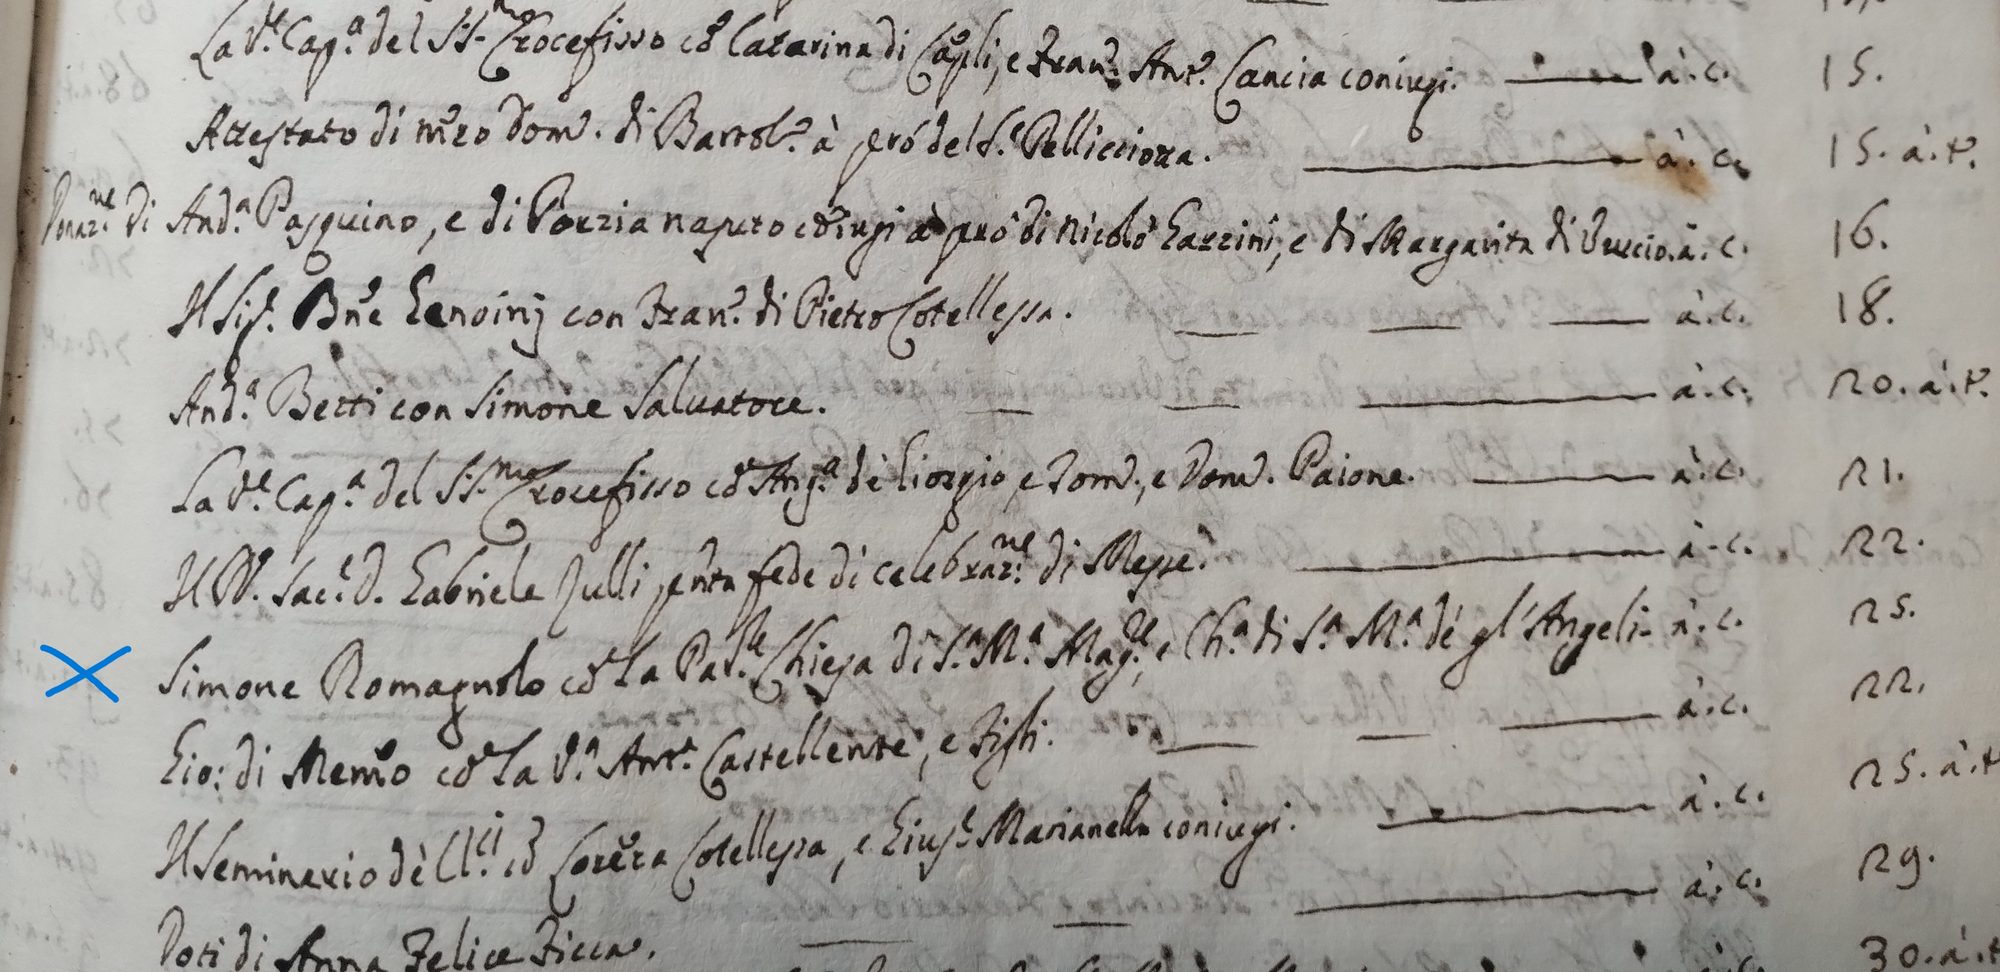 La V.e Cap.a del SS.mo Crocefisso cõ Catarina di Capli, e Fran.o Ant.o Cancia coniugi. à. c. 15.
Attestato di mro Dom.o di Bartol.o à pró del S.e Pellicciotta. à. c. 15. à. t.
Donaz.ne di And.a Pasquino, e di Porzia naputo cõiugi à pró di Nicolò Gazzini, e di Margarita di Vuccio. à. c. 16.
Il Sig.e Bne Genoinj con Fran.o di Pietro Cotellessa. à. c. 18.
And.a Betti con Simone Salvatore. à. c. 20. à. t.
La V.e Cap.a del SS.mo Crocefisso cõ Ang.a dè Giorgio, e Dom.o Paione. à. c. 21.
Il Sac.e D. Gabriele Julli, fede di celebraz.ne di Messe. à. c. 22.
Simone Romagnolo cõ la Par.le Chiesa di S.a M.a Mag.re, e Ch.a di S.a M.a dè gl'Angeli à. c. 25.
Gio: di Memo cõ la V.a Ant.a Castellente, e figli. à. c. 22.
Il Seminario dè Cl.ci cõ Cotellessa, e Gius.e Marianella coniugi. à. c. 25. à. t
à. c. 29.
Doti di Anna Felice Ficca. 30. à. t